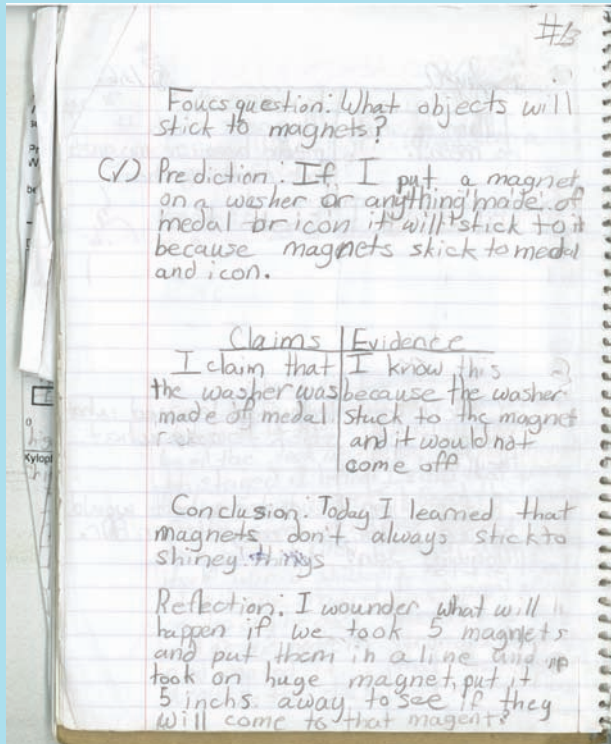 #13
Foucs question: What objects will
stick to magnets?
(✓) Prediction: If I put a magnet
on a washer or anything made of
medal or icon it will stick to it
because magnets skick to medal
and icon.
Claims | Evidence
I claim that | I know this
the washer was | because the washer
made of medal | stuck to the magnet
and it would not
come off
Conclusion: Today I learned that
magnets don't always stick to
shiney things
Reflection: I wounder what will
happen if we took 5 magnets
and put them in a line and
took on huge magnet, put it
5 inchs away to see if they
will come to that magent?
Xylop